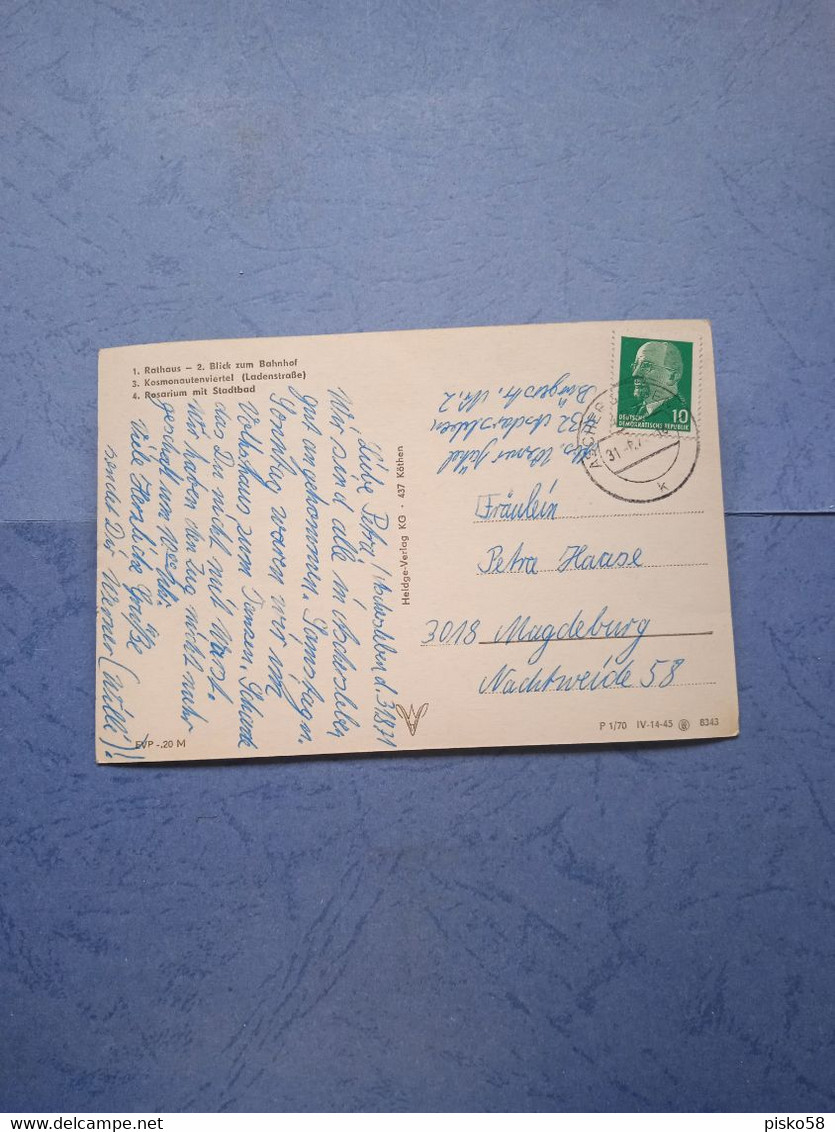 1. Rathaus – 2. Blick zum Bahnhof
3. Kosmonautenviertel (Ladenstraße)
4. Rosarium mit Stadtbad
Aschersleben d. 31.8.71
Liebe Petra!
Wir sind alle in Aschersleben
gut angekommen. Samstag u.
Sonntag waren wir im
Volkshaus zum Tanzen. Schade
das Du nicht mit warst.
Wir haben den Zug nicht mehr
geschafft um
Viele Herzliche Grüße
sendet Dir Werner
EVP -.20 M
Heldge-Verlag KG · 437 Köthen
Abs. Werner
432 Aschersleben
Bürgerstr. Nr. 2
10
DEUTSCHE
DEMOKRATISCHE REPUBLIK
31.
k
Fräulein
Petra Haase
3018 Magdeburg
Nachtweide 58
P 1/70 IV-14-45 8343
delcampe.net
pisko58